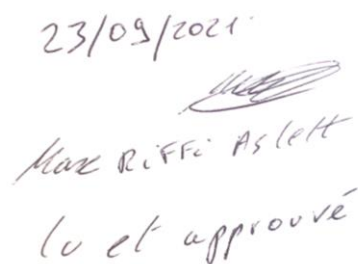 23/09/2021
Max Riffi Aslett
lu et approuvé